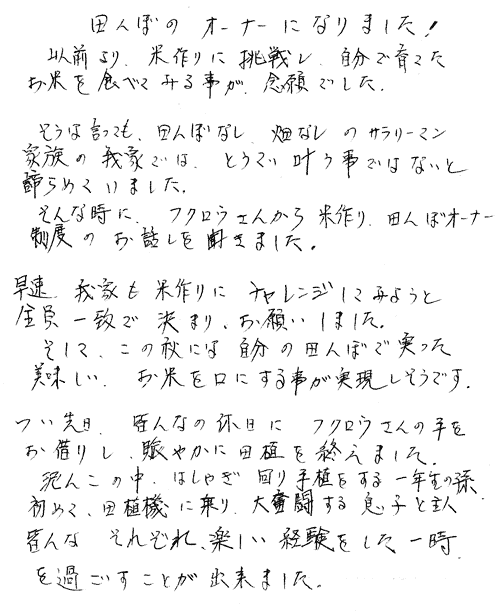 田んぼの オーナーになりました!
以前より、米作りに 挑戦し、自分で育てた
お米を食べてみる事が、念願でした。
そうは言っても、田んぼなし、畑なしのサラリーマン
家族の我家では、とうてい叶う事ではないと
諦らめていました。
そんな時に、フクロウさんから米作り、田んぼオーナー
制度のお話しを聞きました。
早速、我家も米作りに チャレンジしてみようと
全員一致で 決まり、お願いしました。
そして、この秋には自分の田んぼで実った
美味しい、お米を口にする事が実現しそうです。
つい先日、皆んなの休日に フクロウさんの手を
お借りし、賑やかに田植を終えました。
泥んこの中、はしゃぎ回り手植をする一年生の孫、
初めて、田植機に乗り、大奮闘する息子と主人
皆んな それぞれ、楽しい経験をした一時
を過ごすことが出来ました。